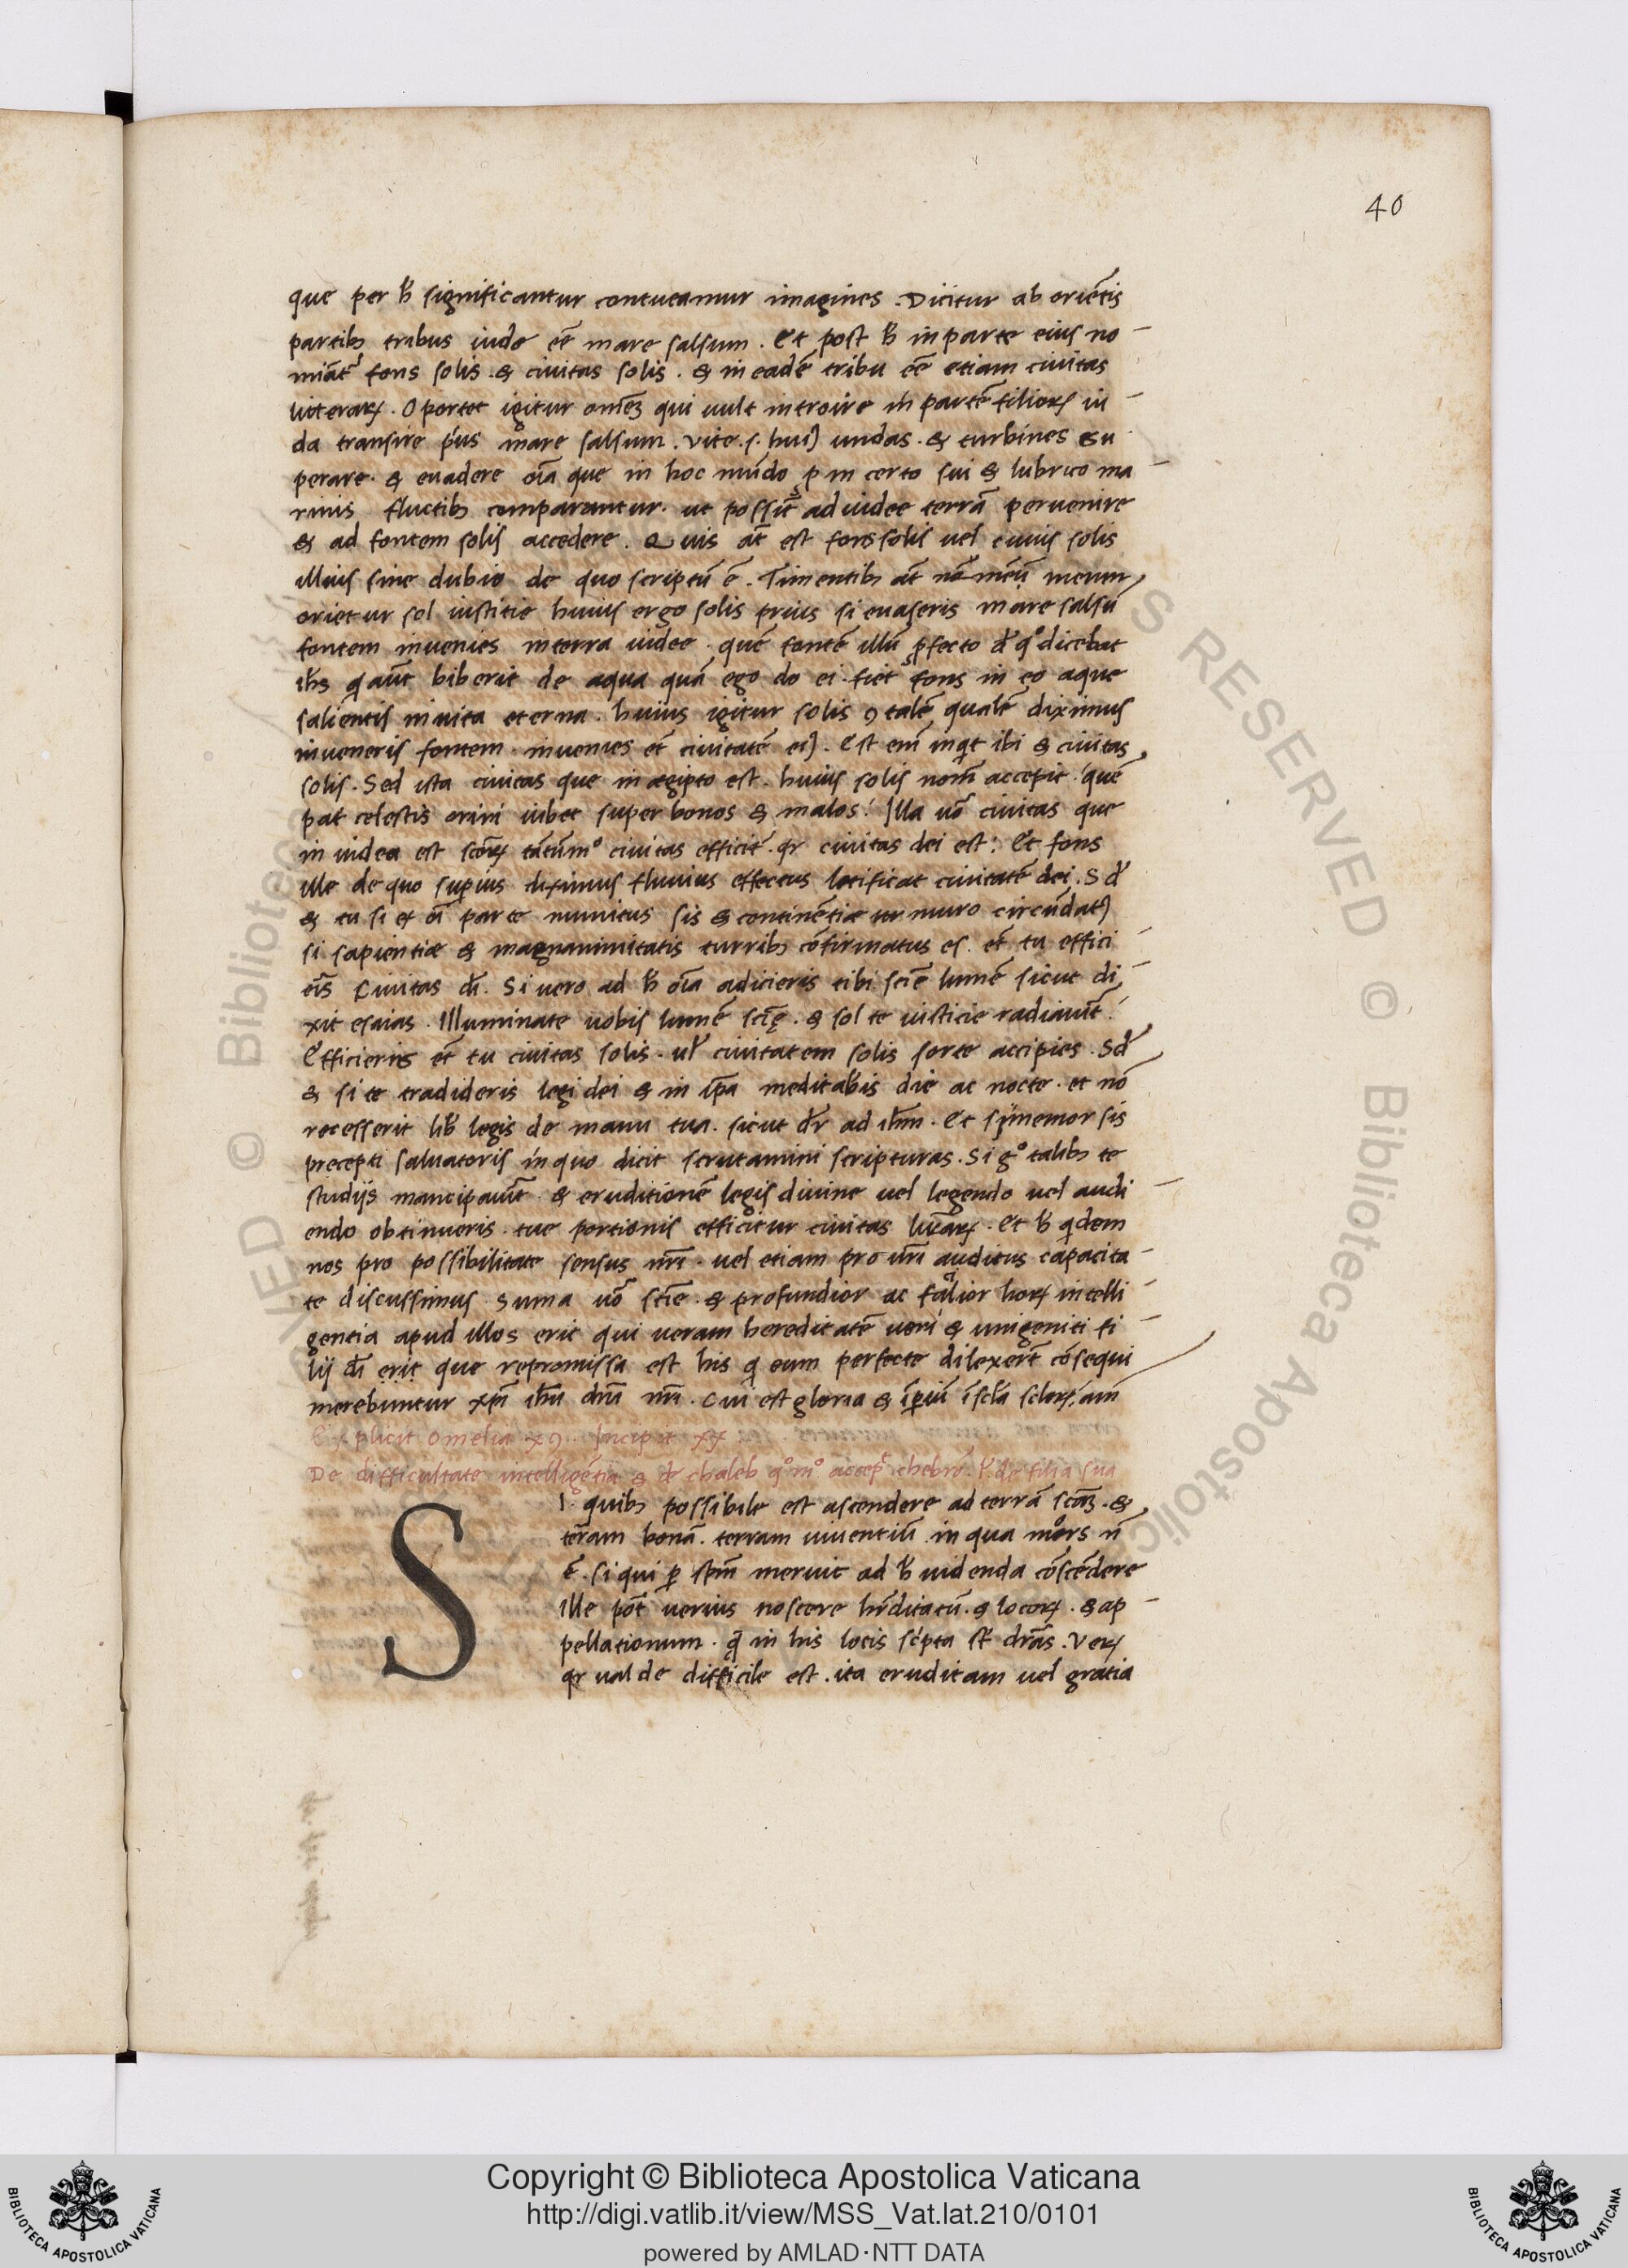 40
que per h̄ significantur contueamur imagines . Dicitur ab oriētis
partibꝫ tribus iude eē mare salsum . Et post h̄ in parte eius no
miāt᷑ fons solis . & civitas solis . & in eadē tribu eē etiam civitas
litteraꝝ . Oportet igitur omēꝫ qui uult introire in partē filioꝝ iu
da transire pͥus mare salsum . vite . s . huiꝰ undas . & turbines su
perare . & euadere oīa que in hoc mūdo ꝓ in certo sui & lubrico ma
rinis fluctibꝫ comparantur . ut possīt ad iudee terrā pervenire
& ad fontem solis accedere . Quis āt est fons solis uel cuius solis
illius sine dubio de quo scriptū ē . Timentibꝫ āt nōmēn meum
orietur sol iustitie huius ergo solis prius si evaseris mare salsū
fontem invenies in terra iudee . quē fontē illū ꝓfecto de qͦ dicebat
ih̄s biberit de aqua quā ego do ei . fiet fons in eo aque
salientis in uita eterna . huius igitur solis ꝯ talē qualē diximus
inveneris fontem . invenies et̄ civitatē eiꝰ . Est eni᷑ inqͥt ibi & civitas
solis . Sed ista civitas que in ægipto est . huius solis nom̄ accepit . quē
pat̄ celestis oriri iubet super bonos & malos : Illa uō civitas que
in iudea est sc̄oꝝ tātūmͦ civitas efficit᷑ . qꝛ civitas dei est : Et fons
ille de quo superius diximus fluvius effectus letificat civitatē dei . Sꝫ
& tu si et oī parte munitus sis & continētiæ muro circūdatꝰ
si sapientiæ & magnanimitatis turribꝫ cōfirmatus es . et̄ tu effici
eīs Civitas d̄i . Si vero ad h̄ oīa adicieris tibi sciē̄ lumē sicut di
xit esaias . Illuminate uobis lumē sciē̄ . & sol te iusticie radiauit̄ .
Efficieris et̄ tu civitas solis . ul̄ civitatem solis sorte accipies . Sꝫ
& si te tradideris legi dei & in ip̄a meditab̄is die ac nocte . et nō
recesserit lib̄ legis de manu tua . sicut d̄r ad ih̄m . Et si memor sis
precepti saluatoris in quo dicit scrutamini scripturas . Si gͦ talibꝫ te
studijs mancipauit̄ . & eruditionē legis divine uel legendo uel audi
endo obtinueris . tue portionis efficitur civitas lr̄aꝝ . Et h̄ qͥdem
nos pro possibilitate sensus nr̄i . uel etiam pro ur̄i auditus capacita
te discussimus . Suma uō sciē̄ . & profundior ac hoꝝ intelli
gentia apud illos erit qui ueram hereditatē ueri & unigeniti fi
lij d̄i erit que repromissa est his qͥ eum perfecte dilexerīt cōsequi
merebuntur xp̄i ih̄u dn̄i nr̄i . Cui est gloria & īꝑiū ī sc̄la sc̄loꝝ . am̄
Explicit Omelia . xꝯ . Incipit xx
De difficultate intelligētia & de chaleb qͦmͦ accep̄ chebrō . & de filia sua
SI . quibꝫ possibile est ascendere ad terrā scāꝫ . &
terram bonā . terram uiuentiū . in qua mors n̄
ē . si qui ꝑ sp̄m meruit ad h̄ uidenda cōscēdere
ille pōt uerius noscere hr̄ditatū . & locoꝝ . & ap
pellationum . q̄ in his locis scͥpta st̄ dr̄as . Veꝝ
qꝛ ualde difficile est . ita eruditam uel gratia
© Biblioteca Apostolica
RESERVED © Biblioteca Apostolica
Copyright © Biblioteca Apostolica Vaticana
http://digi.vatlib.it/view/MSS_Vat.lat.210/0101
powered by AMLAD·NTT DATA
BIBLIOTECA APOSTOLICA VATICANA
BIBLIOTECA APOSTOLICA VATICANA